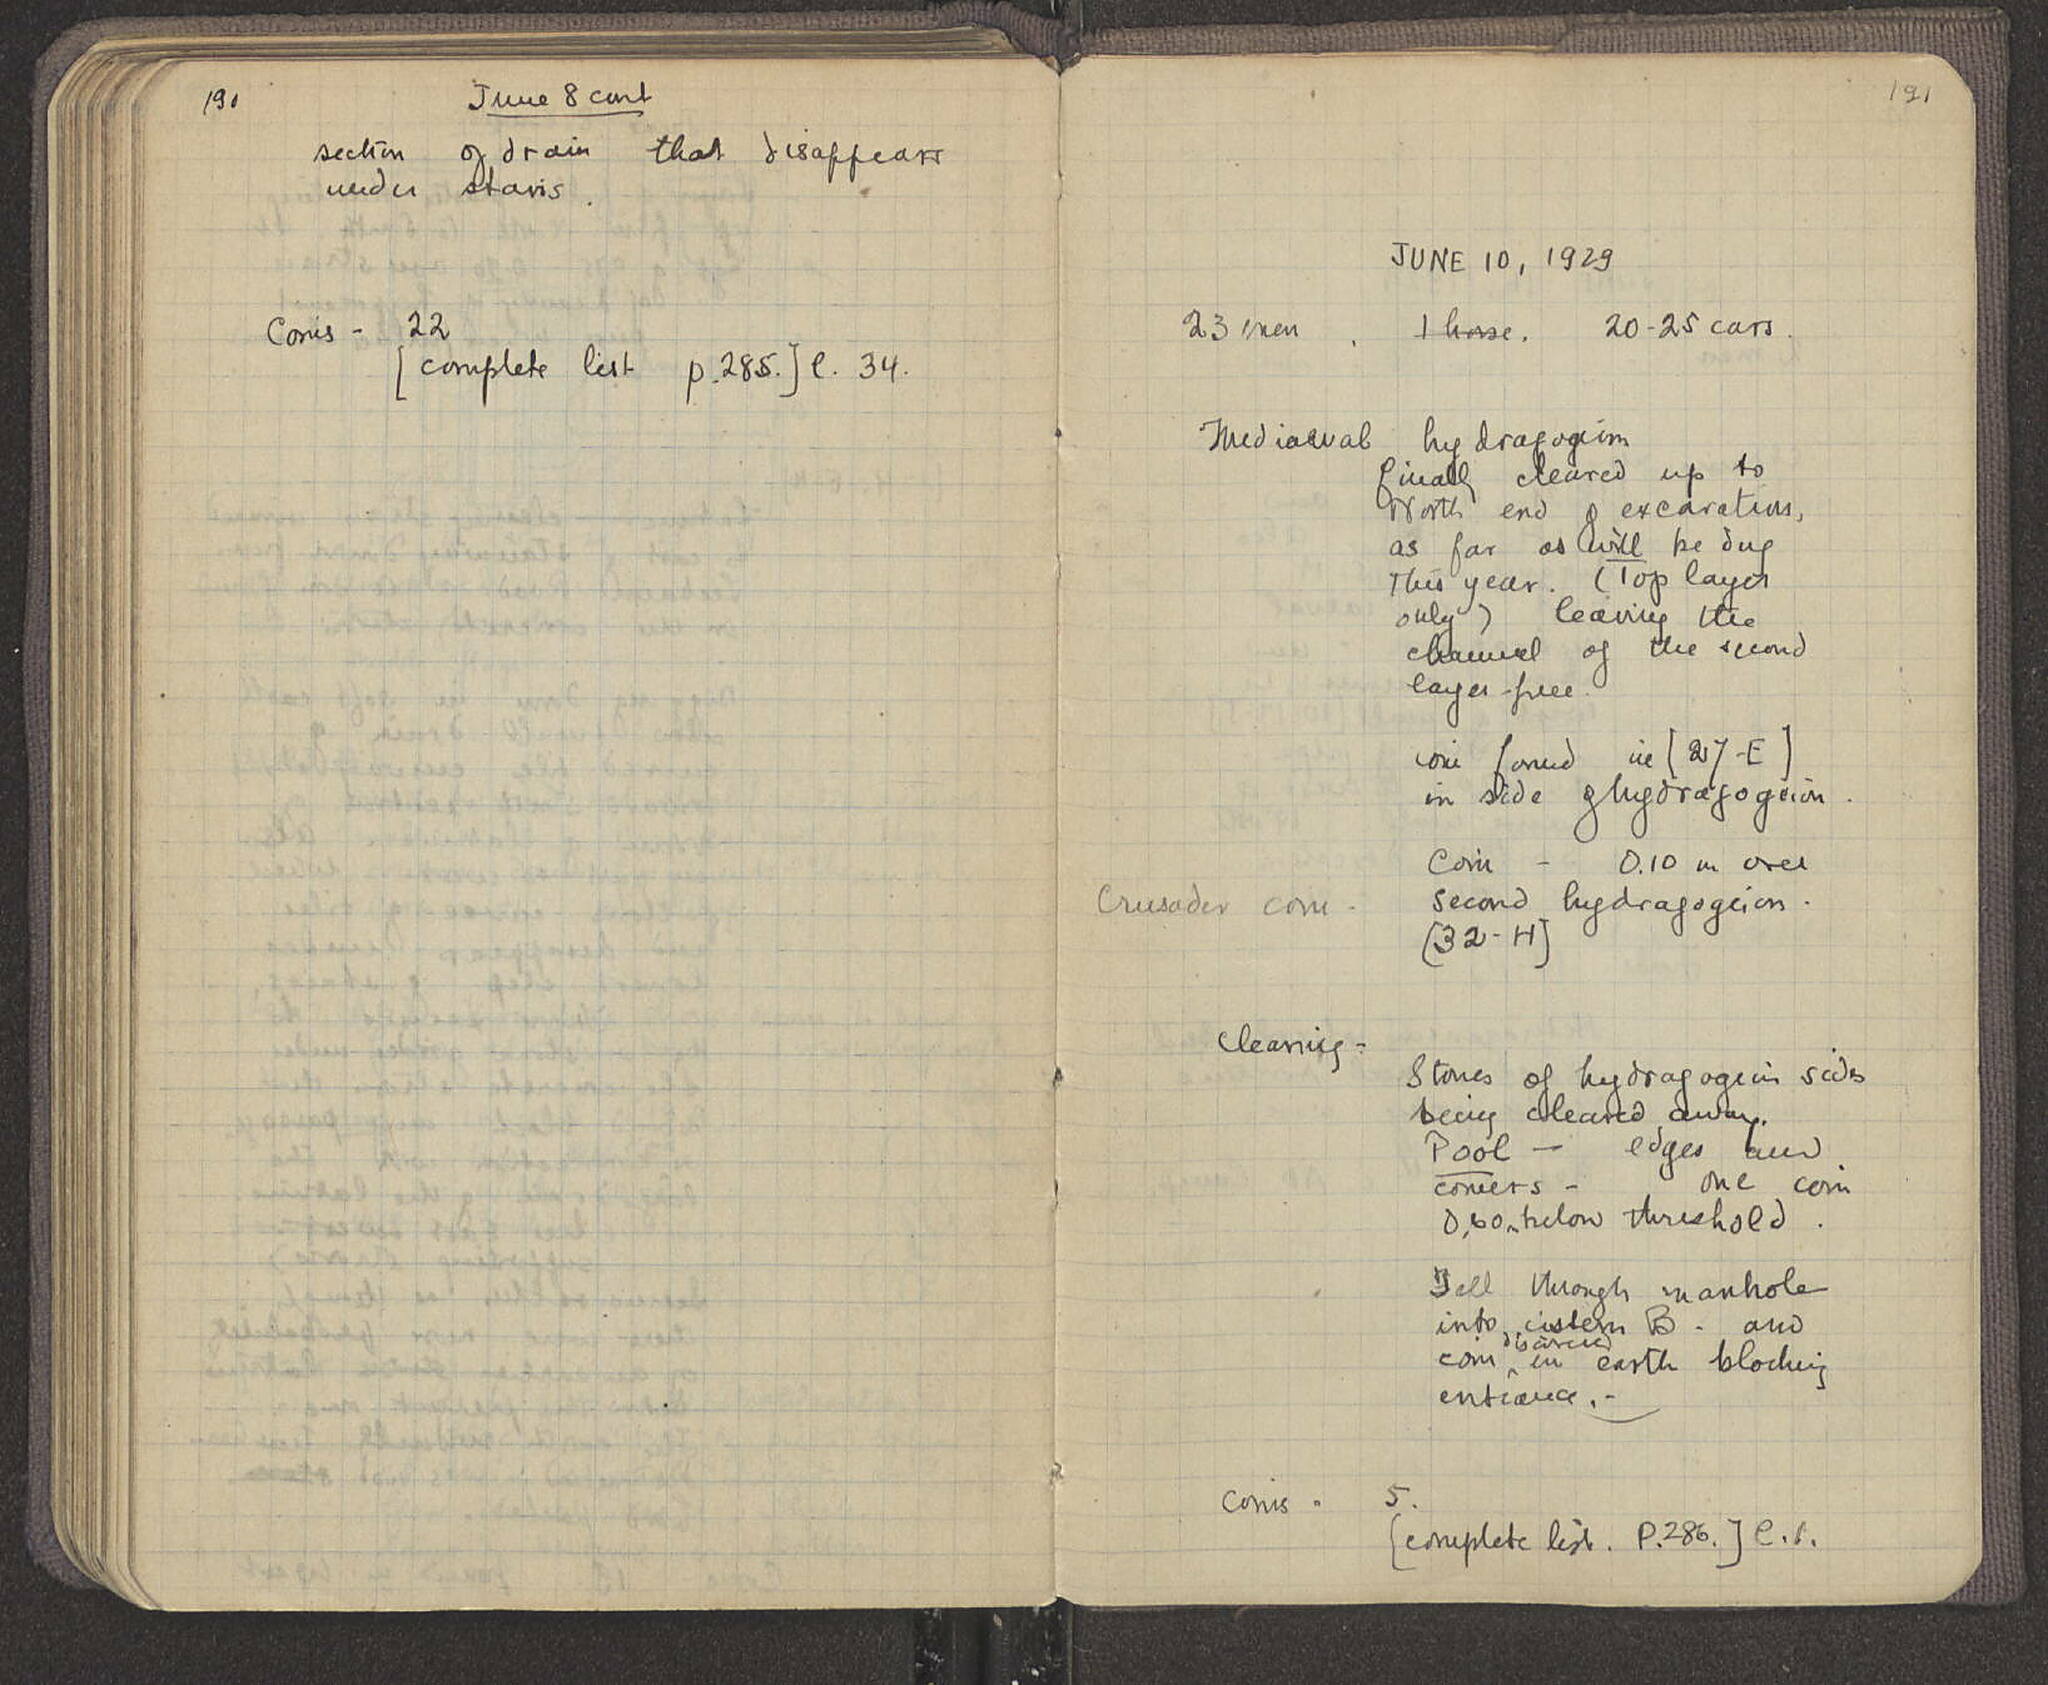 190
June 8 cont
section of drain that disappears
under stairs.
Coins - 22
[complete list p. 285.] l. 34.
191
JUNE 10, 1929
23 men, 1 horse. 20-25 cars.
Mediaeval hydragogeion
finally cleared up to
North end of excavations,
as far as will be dug
this year. (Top layer
only) leaving the
channel of the second
layer free.
coin found in [27-E]
in side of hydragogeion.
Coin - 0.10 m over
Crusader coin - second hydragogeion.
[32-H]
Cleaning -
Stones of hydragogeion sides
being cleared away.
Pool - edges and
corners - one coin
0,60 m below threshold.
Fell through manhole
into cistern B - and
coin discovered in earth blocking
entrance. -
Coins - 5.
[complete list. P. 286.] l. 1.